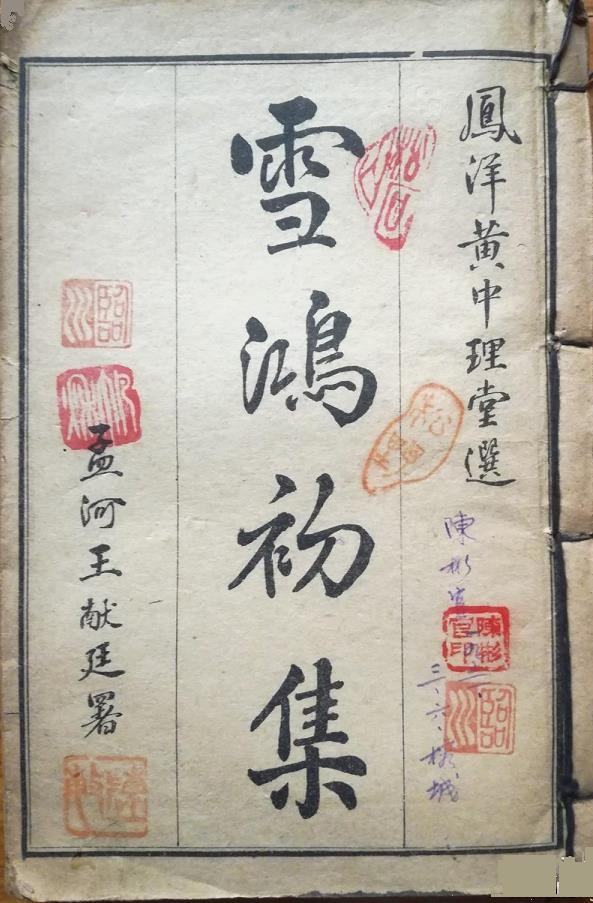 鳳洋黄中理堂選
雪鴻初集
孟河王献廷署
陳彬
三六
城
陳彬
官印
臨川
臨川